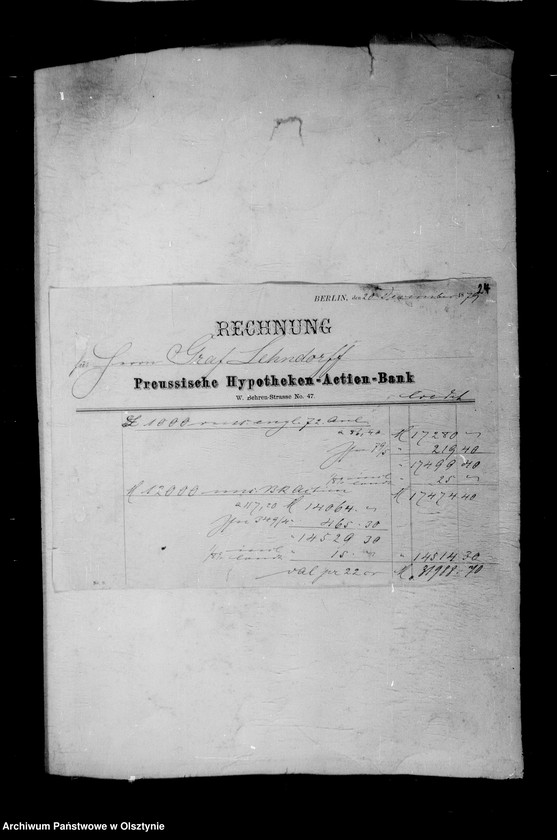 24
BERLIN, den 20 Dezember 1879
RECHNUNG
für Herrn Graf Lehndorff
Preussische Hypotheken-Action-Bank
W. Behren-Strasse No. 47.
Credit
£ 1000 russ engl 72 Anl
a 86,40 M 17280 —
219 40
" 17499 40
" 25 —
M 12000 russ Bk Action M 17474 40
a 117,20 M 14064 —
465 30
" 14529 30
" 15 — " 14514 30
Val pr 22 M 31988 70
Archiwum Państwowe w Olsztynie